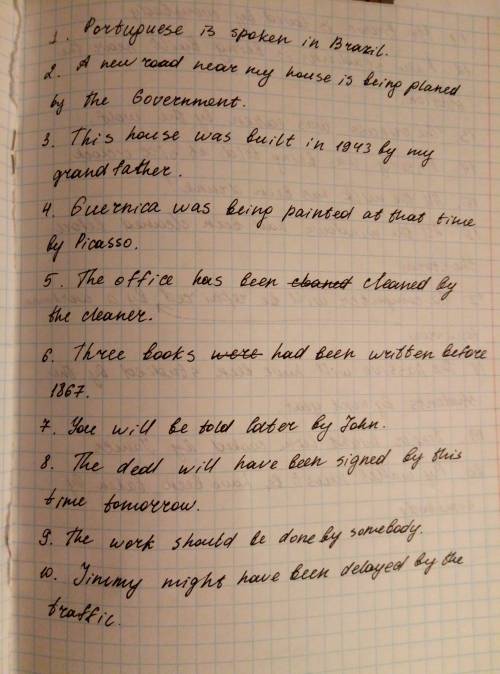 1. Portuguese is spoken in Brazil.
2. A new road near my house is being planed
by the Government.
3. This house was built in 1943 by my
grandfather.
4. Guernica was being painted at that time
by Picasso.
5. The office has been cleaned cleaned by
the cleaner.
6. Three books were had been written before
1867.
7. You will be told later by John.
8. The deal will have been signed by this
time tomorrow.
9. The work should be done by somebody.
10. Jimmy might have been delayed by the
traffic.